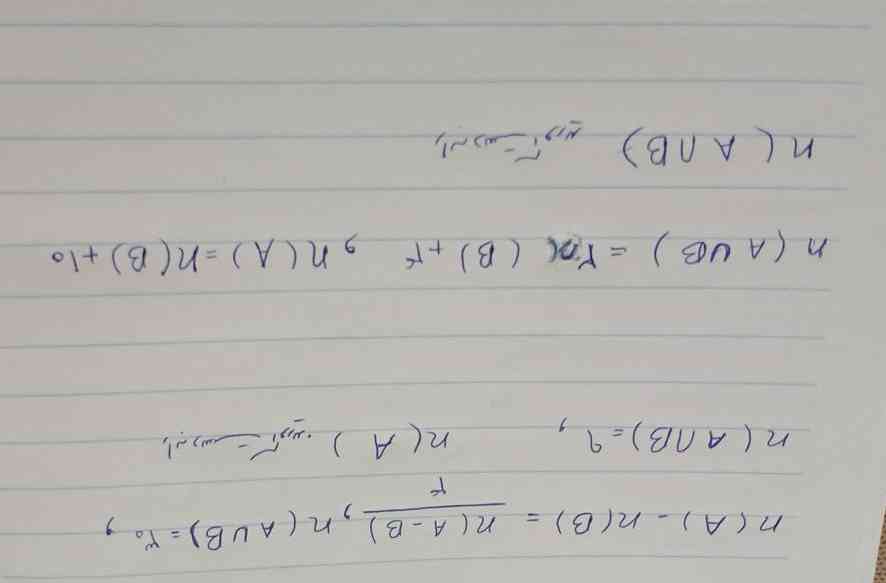 n(A) - n(B) = n(A-B)/۴ , n(A∪B)=۳۰ ,
n(A∩B)=۹ , n(A) را بدست آورید.
n(A∪B) = ۲n(B)+۴ , n(A)=n(B)+۱۰
n(A∩B) را بدست آورید